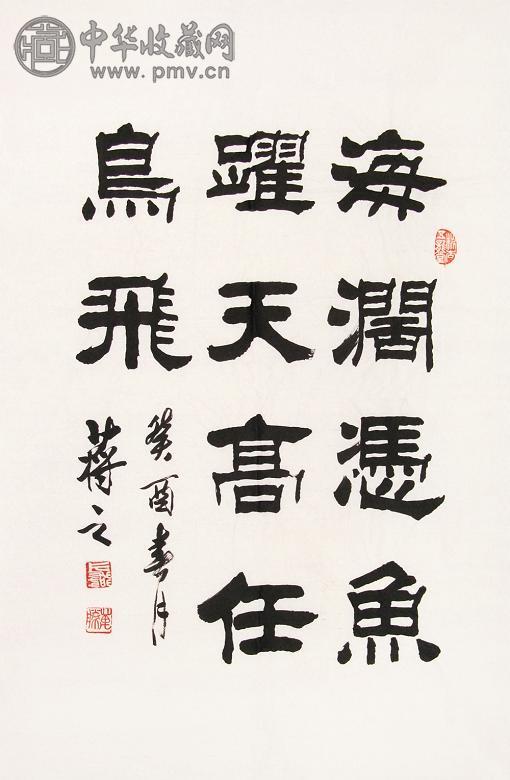 中华收藏网
www.pmv.cn
海濶憑魚
躍天高任
鳥飛
癸酉春月
蒋之